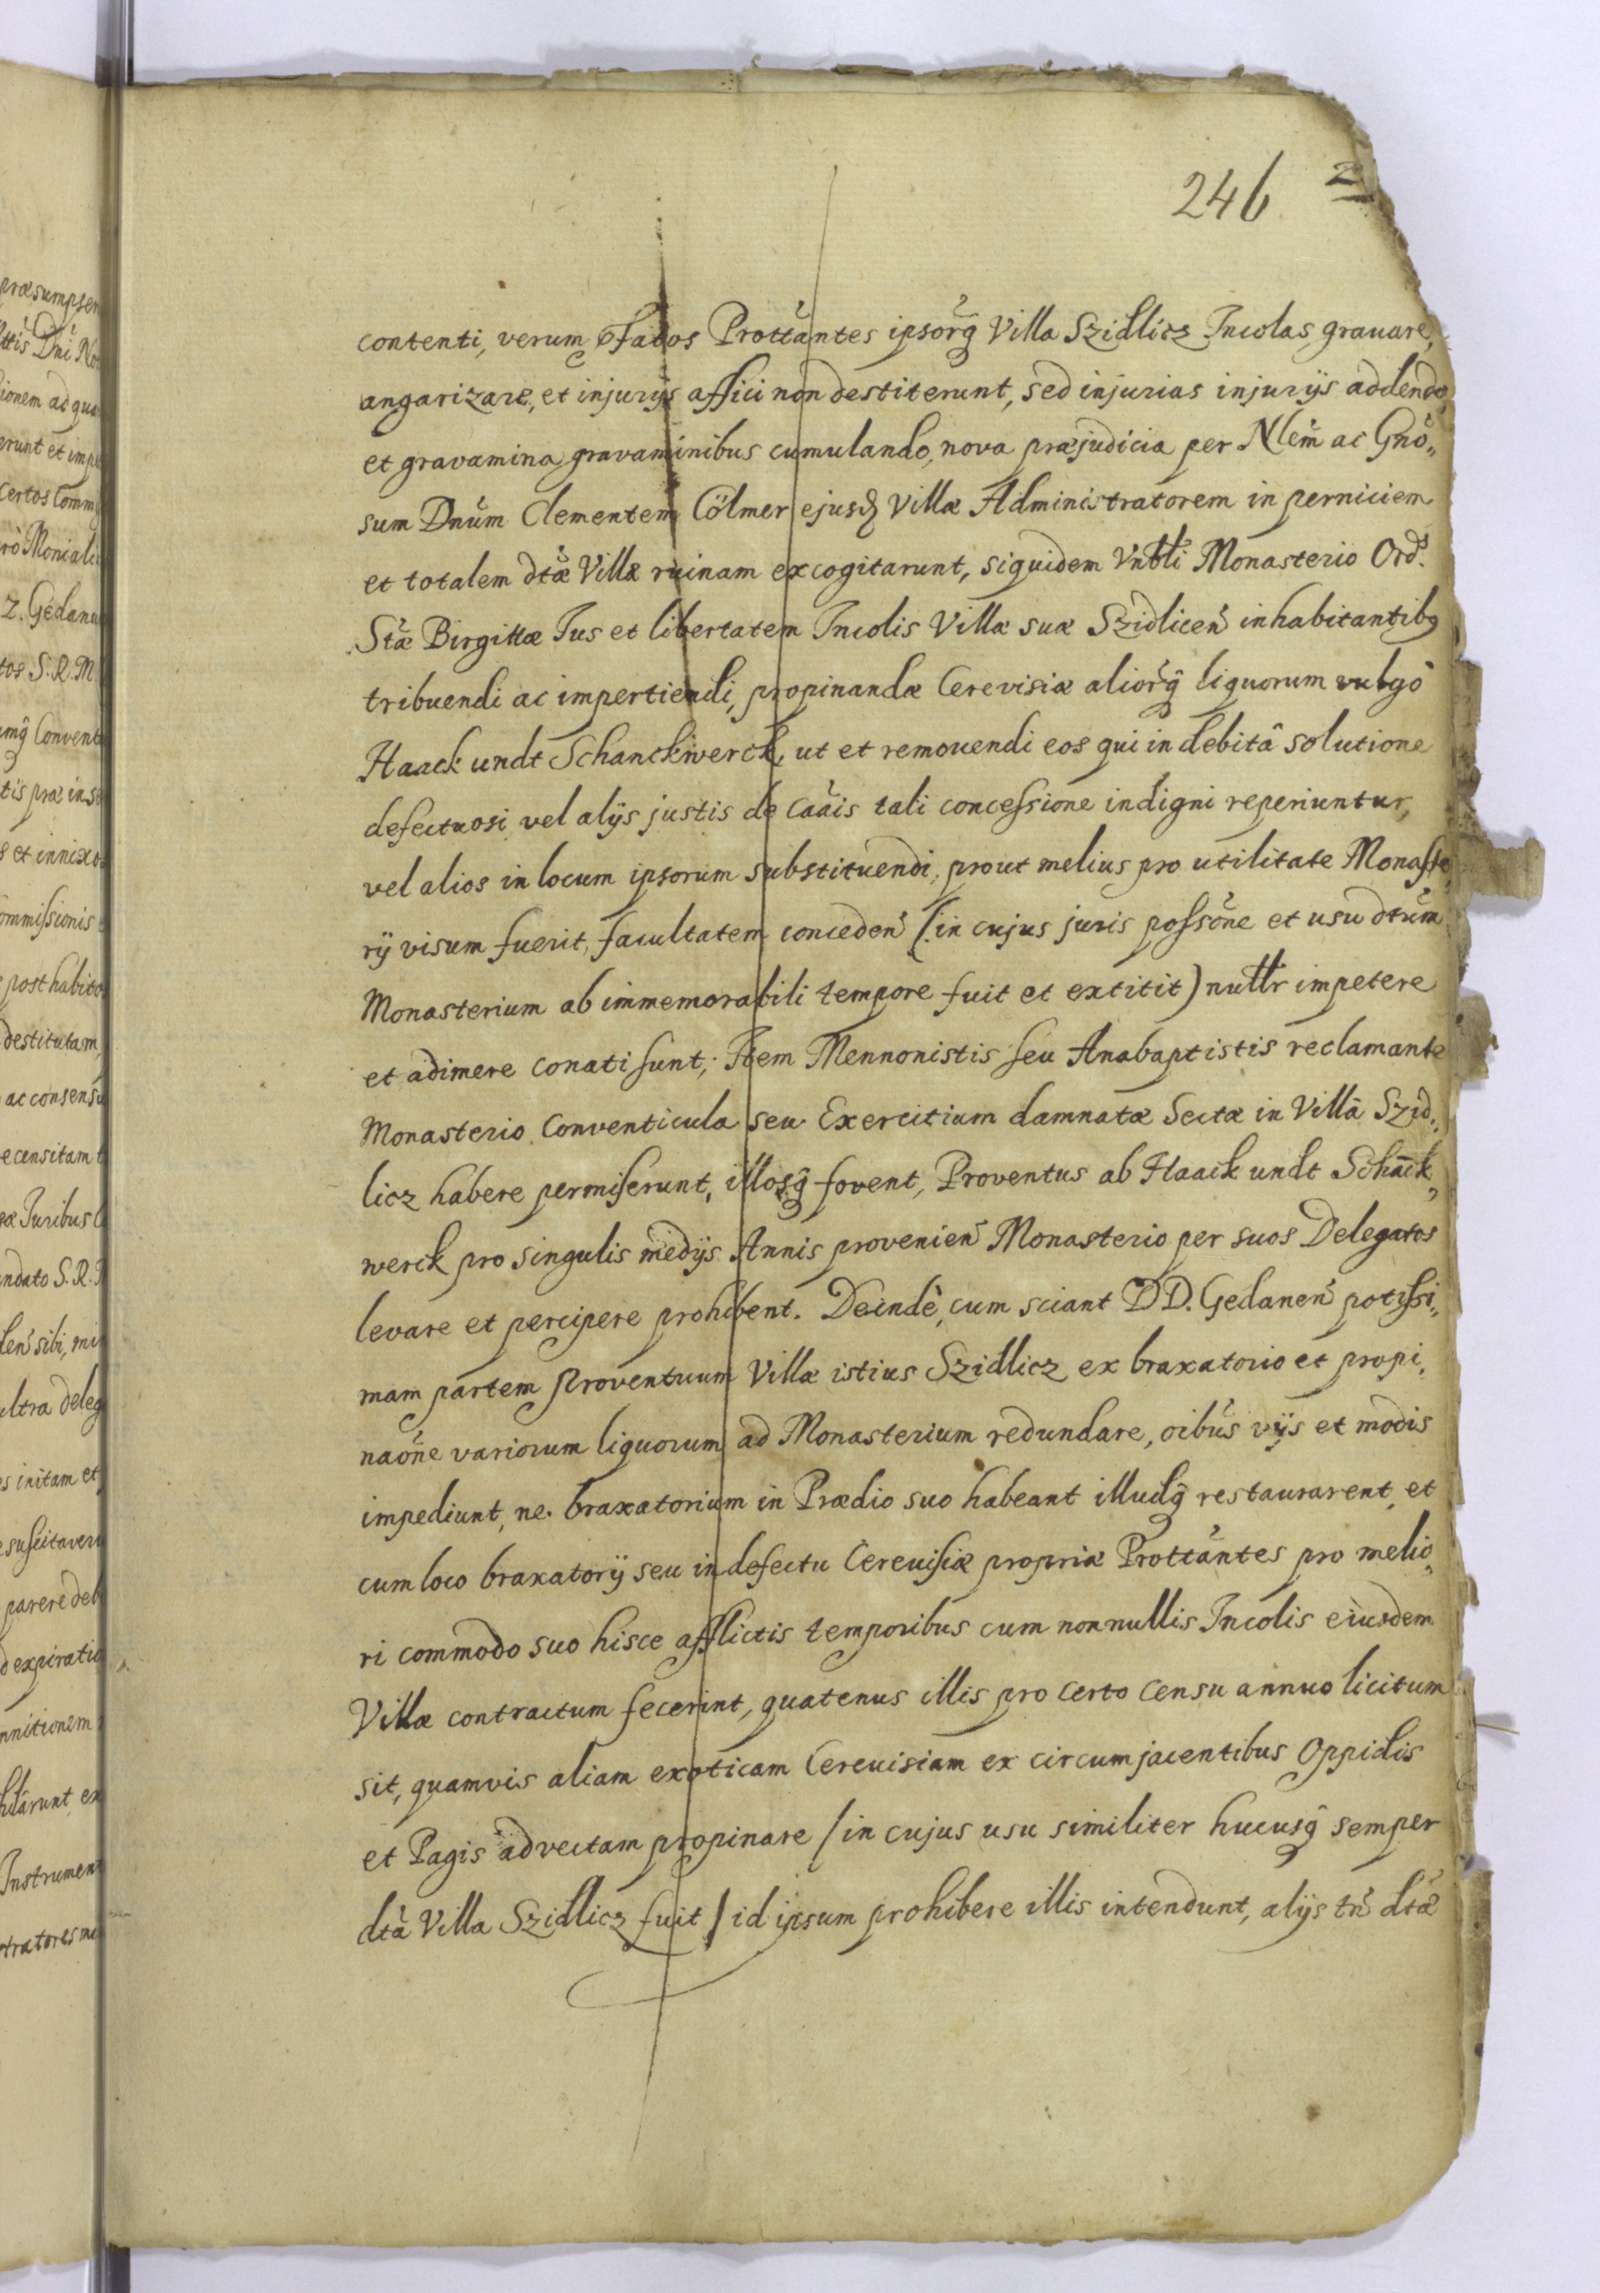 246 2
præsumpser
ttis Dnī No
ionem ad qua
erunt et impe
certos Comm
rò Monialiū
z. Gedanen
tos S.R.M.
umq̃ Convent
tis præ inse
s et innixo
ommissionis
post habito
destitutam,
ac consensu
ecensitam
æ Iuribus
ndato S.R.
len̄ sibi, mi
ultra deleg
s initam et
suscitaver
parere deb
d expiratio
nnitionem
hdârunt, ex
Instrumen
tratores me
contenti, verum Pfatos Prottāntes ipsorq̃ Villa Szidlicz Incolas grauare,
angarizare, et injurijs affici non destiterunt, sed injurias injurijs addendo,
et gravamina gravaminibus cumulando, nova præjudicia per Nlem̄ ac Gnō„
sum Dnūm Clementem Cölmer ejusd̨ Villæ Administratorem in perniciem
et totalem dtǣ Villæ ruinam excogitarunt, siquidem Vnbli Monasterio Ord.
Stǣ Birgittæ Ius et libertatem Incolis Villæ suæ Szidlicen̄ inhabitantibq
tribuendi ac impertiendi, propinandæ Cerevisiæ aliorq̃ liquorum vulgò
Haack undt Schanckwerck, ut et remouendi eos qui in debitâ solutione
defectuosi vel alijs justis de Caāis tali concessione indigni reperiuntur,
vel alios in locum ipsorum substituendi, prout melius pro utilitate Monaste„
rij visum fuerit, facultatem conceden̄ (in cujus juris possōne et usu dtūm
Monasterium ab immemorabili tempore fuit et extitit) nullr impetere
et adimere conati sunt; Item Mennonistis seu Anabaptistis reclamante
Monasterio Conventicula seu Exercitium damnatæ Sectæ in Villâ Szid„
licz habere permiserunt, illosq̃ fovent, Proventus ab Haack undt Schāck„
werck pro singulis medijs Annis provenien̄ Monasterio per suos Delegatos
levare et percipere prohibent. Deindè, cum sciant DD. Gedanen̄ potissi„
mam partem Proventuum Villæ istius Szidlicz ex braxatorio et propi„
naōne variorum liquorum ad Monasterium redundare, oibūs vijs et modis
impediunt, ne braxatorium in Prædio suo habeant illudq̃ restaurarent, et
cum loco braxatorij seu in defectu Cereuisiæ propriæ Prottāntes pro melio„
ri commodo suo hisce afflictis temporibus cum nonnullis Incolis eiusdem
Villæ contractum fecerint, quatenus illis pro certo censu annuo licitum
sit, quamvis aliam exoticam Cereuisiam ex circumjacentibus Oppidis
et Pagis advectam propinare / in cujus usu similiter hucusq̃ semper
dtā Villa Szidlicz fuit / id ipsum prohibere illis intendunt, alijs tn̄ dtǣ